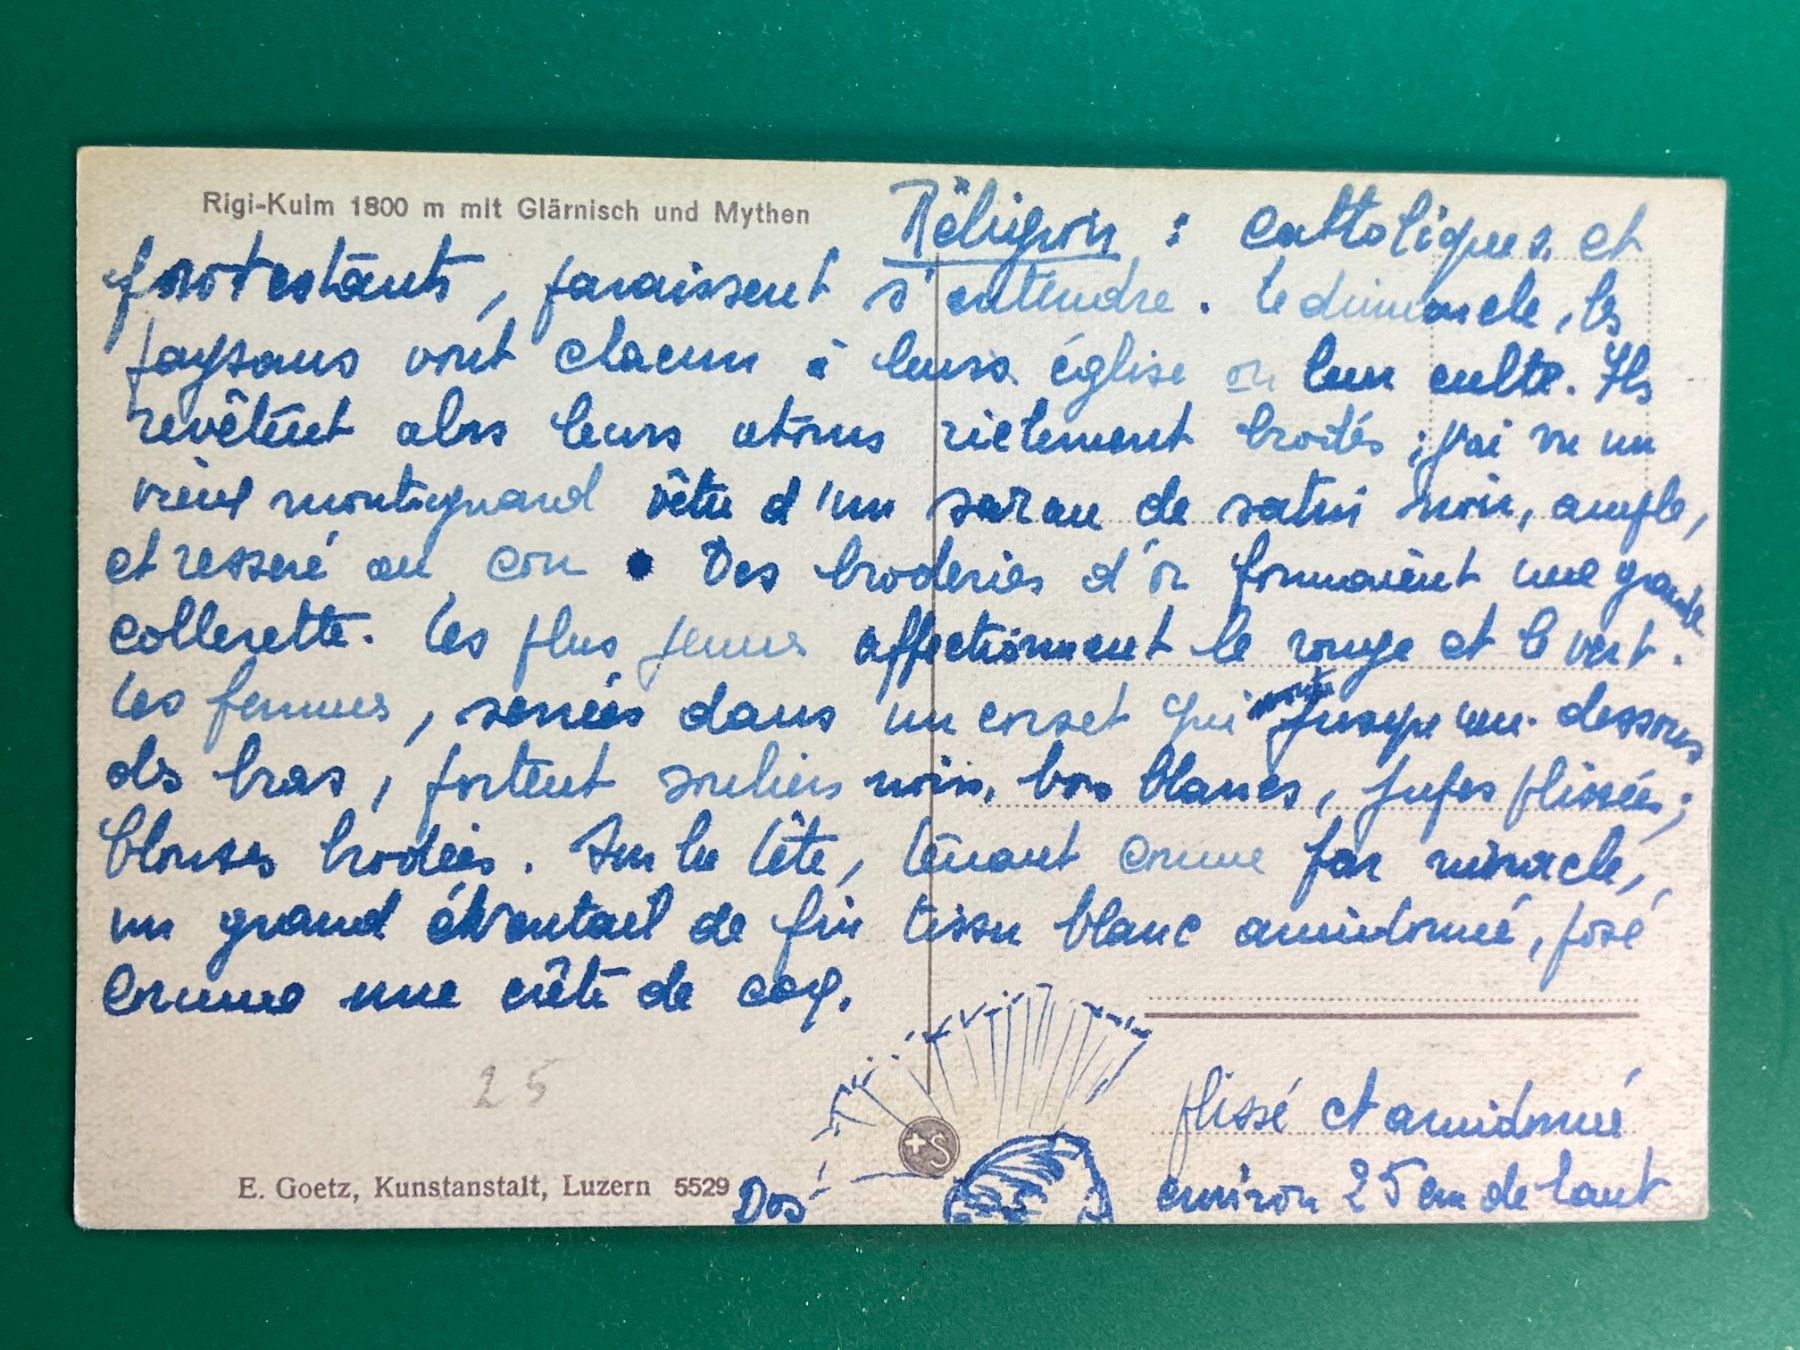 Rigi-Kulm 1800 m mit Glärnisch und Mythen
Réligion : cattoliques et
protestants, paraissent s'entendre. Le dimanche, les
paysans vont chacun à leurs église ou leur culte. Ils
revêtent alors leurs atours richement brodés ; j'ai vu un
vieux montagnard vêtu d'un sarau de satin noir, ample,
et resseré au cou. Des broderies d'or formaient une grande
collerette. Les plus jeunes affectionnent le rouge et le vert.
Les femmes, serrées dans un corset qui monte jusqu'au dessous
des bras, portent souliers noirs, bas blancs, jupes plissées ;
blouses brodées. Sur la tête, tenant comme par miracle,
un grand éventail de fin tissu blanc amidonné, posé
comme une crête de coq.
25
plissé et amidonné
environ 25 cm de haut
Dos
+S
E. Goetz, Kunstanstalt, Luzern 5529